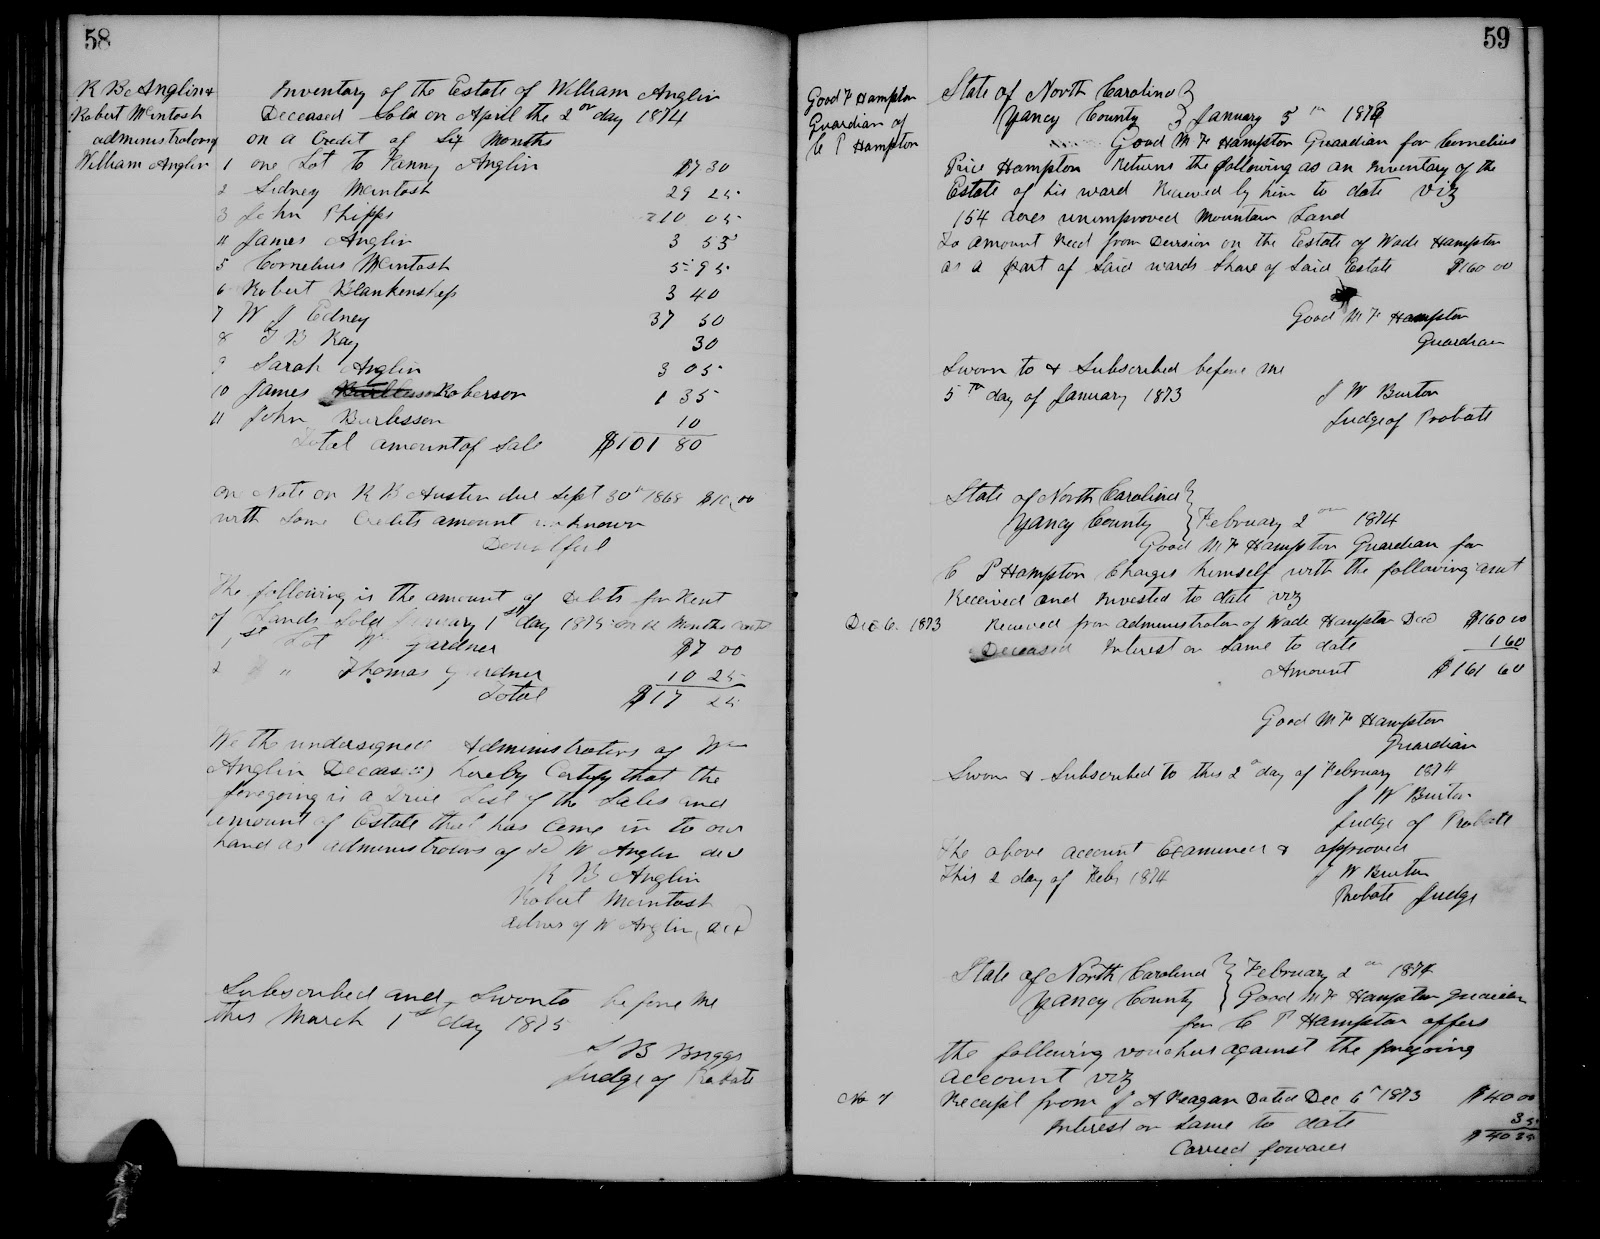 58
R B Anglin &
Robert McIntosh
administrators
William Anglin
Inventory of the Estate of William Anglin
Deceased Sold on April the 2nd day 1874
on a Credit of Six Months
1 one Lot to Fanny Anglin $7 30
2 Sidney McIntosh 29 25
3 John Phipps 10 05
4 James Anglin 3 55
5 Cornelius McIntosh 5 95
6 Robert Blankenship 3 40
7 W J Edney 37 50
8 T B Ray 30
9 Sarah Anglin 3 05
10 James Roberson 1 35
11 John Burlesson 10
Total amount of Sale $101 80
one Note on R B Austin due Sept 30th 1868 $10,00
with Some Credits amount unknown
Doubtful
The following is the amount of Debts for Rent
of Lands Sold January 1st day 1875 on 12 Months
1st Lot Wm Gardner $7 00
2 " " Thomas Gardner 10 25
Total $17 25
We the undersigned Administrators of Wm
Anglin Deceased hereby Certify that the
foregoing is a True List of the Sales and
amount of Estate that has Come in to our
hand as administrators of W Anglin decd
R B Anglin
Robert McIntosh
admrs of W Anglin, decd
Subscribed and Sworn to before me
this March 1st day 1875
J B Briggs
Judge of Probate
59
Good F Hampton
Guardian of
C P Hampton
State of North Carolina }
Yancy County } January 5th 1873
Good M F Hampton Guardian for Cornelius
Price Hampton Returns the following as an Inventory of the
Estate of his ward Received by him to date Viz
154 acres unimproved Mountain Land
To amount Recd from Division on the Estate of Wade Hampton
as a part of Said wards Share of Said Estate $160 00
Good M F Hampton
Guardian
Sworn to & Subscribed before me
5th day of January 1873 J W Burton
Judge of Probate
State of North Carolina }
Yancy County } February 2nd 1874
Good M F Hampton Guardian for
C P Hampton Charges himself with the following amt
Received and Invested to date viz
Dec 6. 1873 Received from administrator of Wade Hampton Decd $160 00
Deceased Interest on Same to date 1 60
Amount $161 60
Good M F Hampton
Guardian
Sworn & Subscribed to this 2d day of February 1874
J W Burton
Judge of Probate
The above account Examined & approved
This 2 day of Feby 1874 J W Burton
Probate Judge
State of North Carolina } February 2nd 1874
Yancy County } Good M F Hampton Guardian
for C P Hampton offers
the following vouchers against the foregoing
account viz
No 1 Receipt from J A Reagan Dated Dec 6th 1873 $40 00
Interest on Same to date 35
Carried forward $40 35